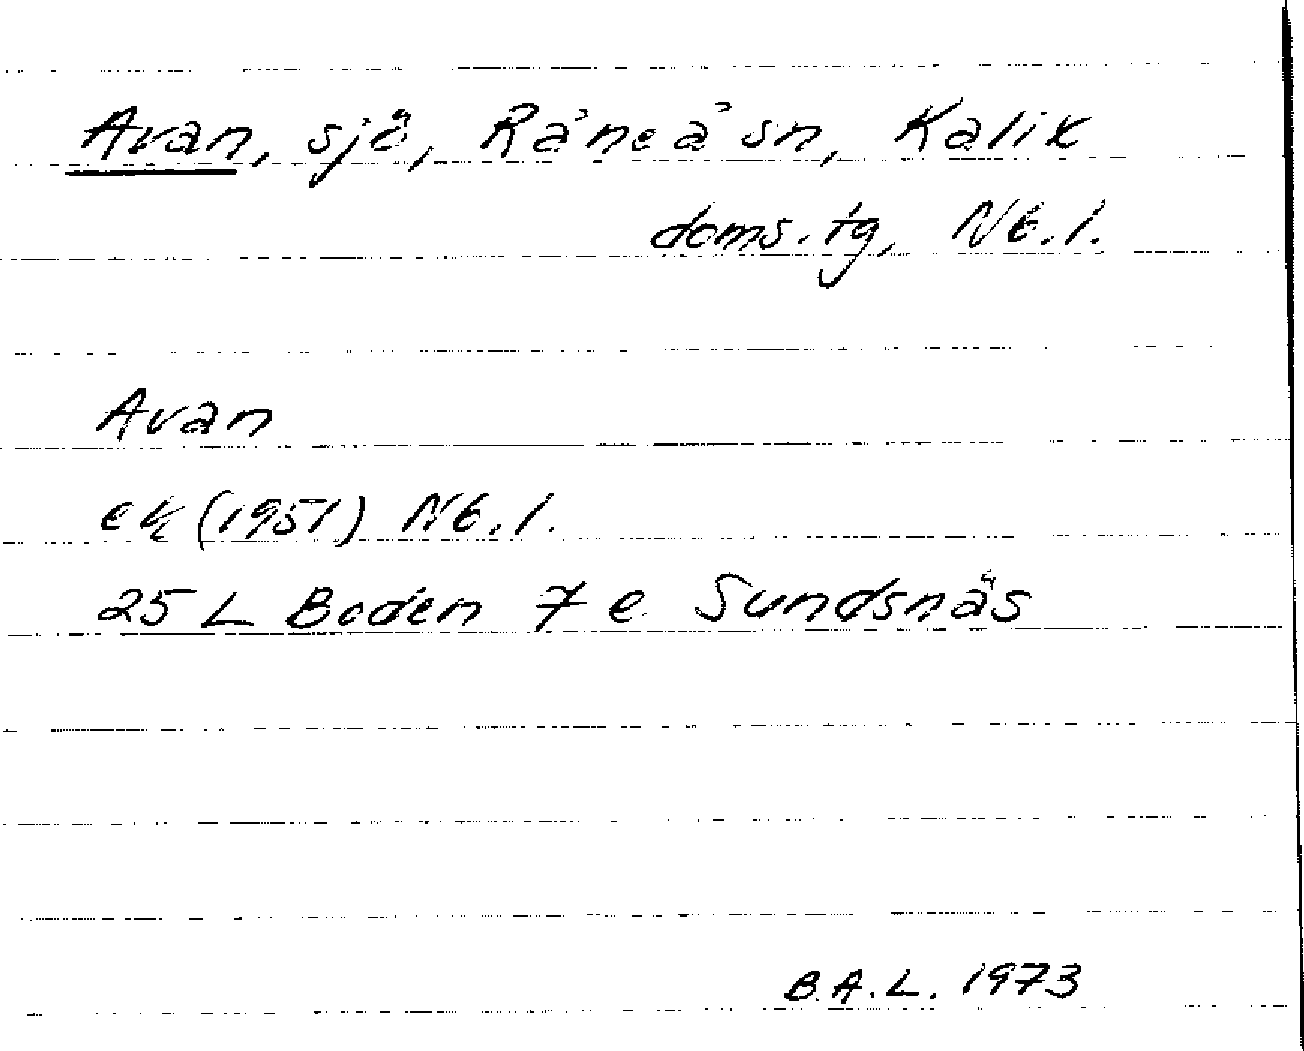 Avan, sjö, Råneå sn, Kalix
doms. tg, Nb. l.
Avan
ek (1951) Nb. l.
25 L Boden 7 e Sundsnäs
B.A.L. 1973